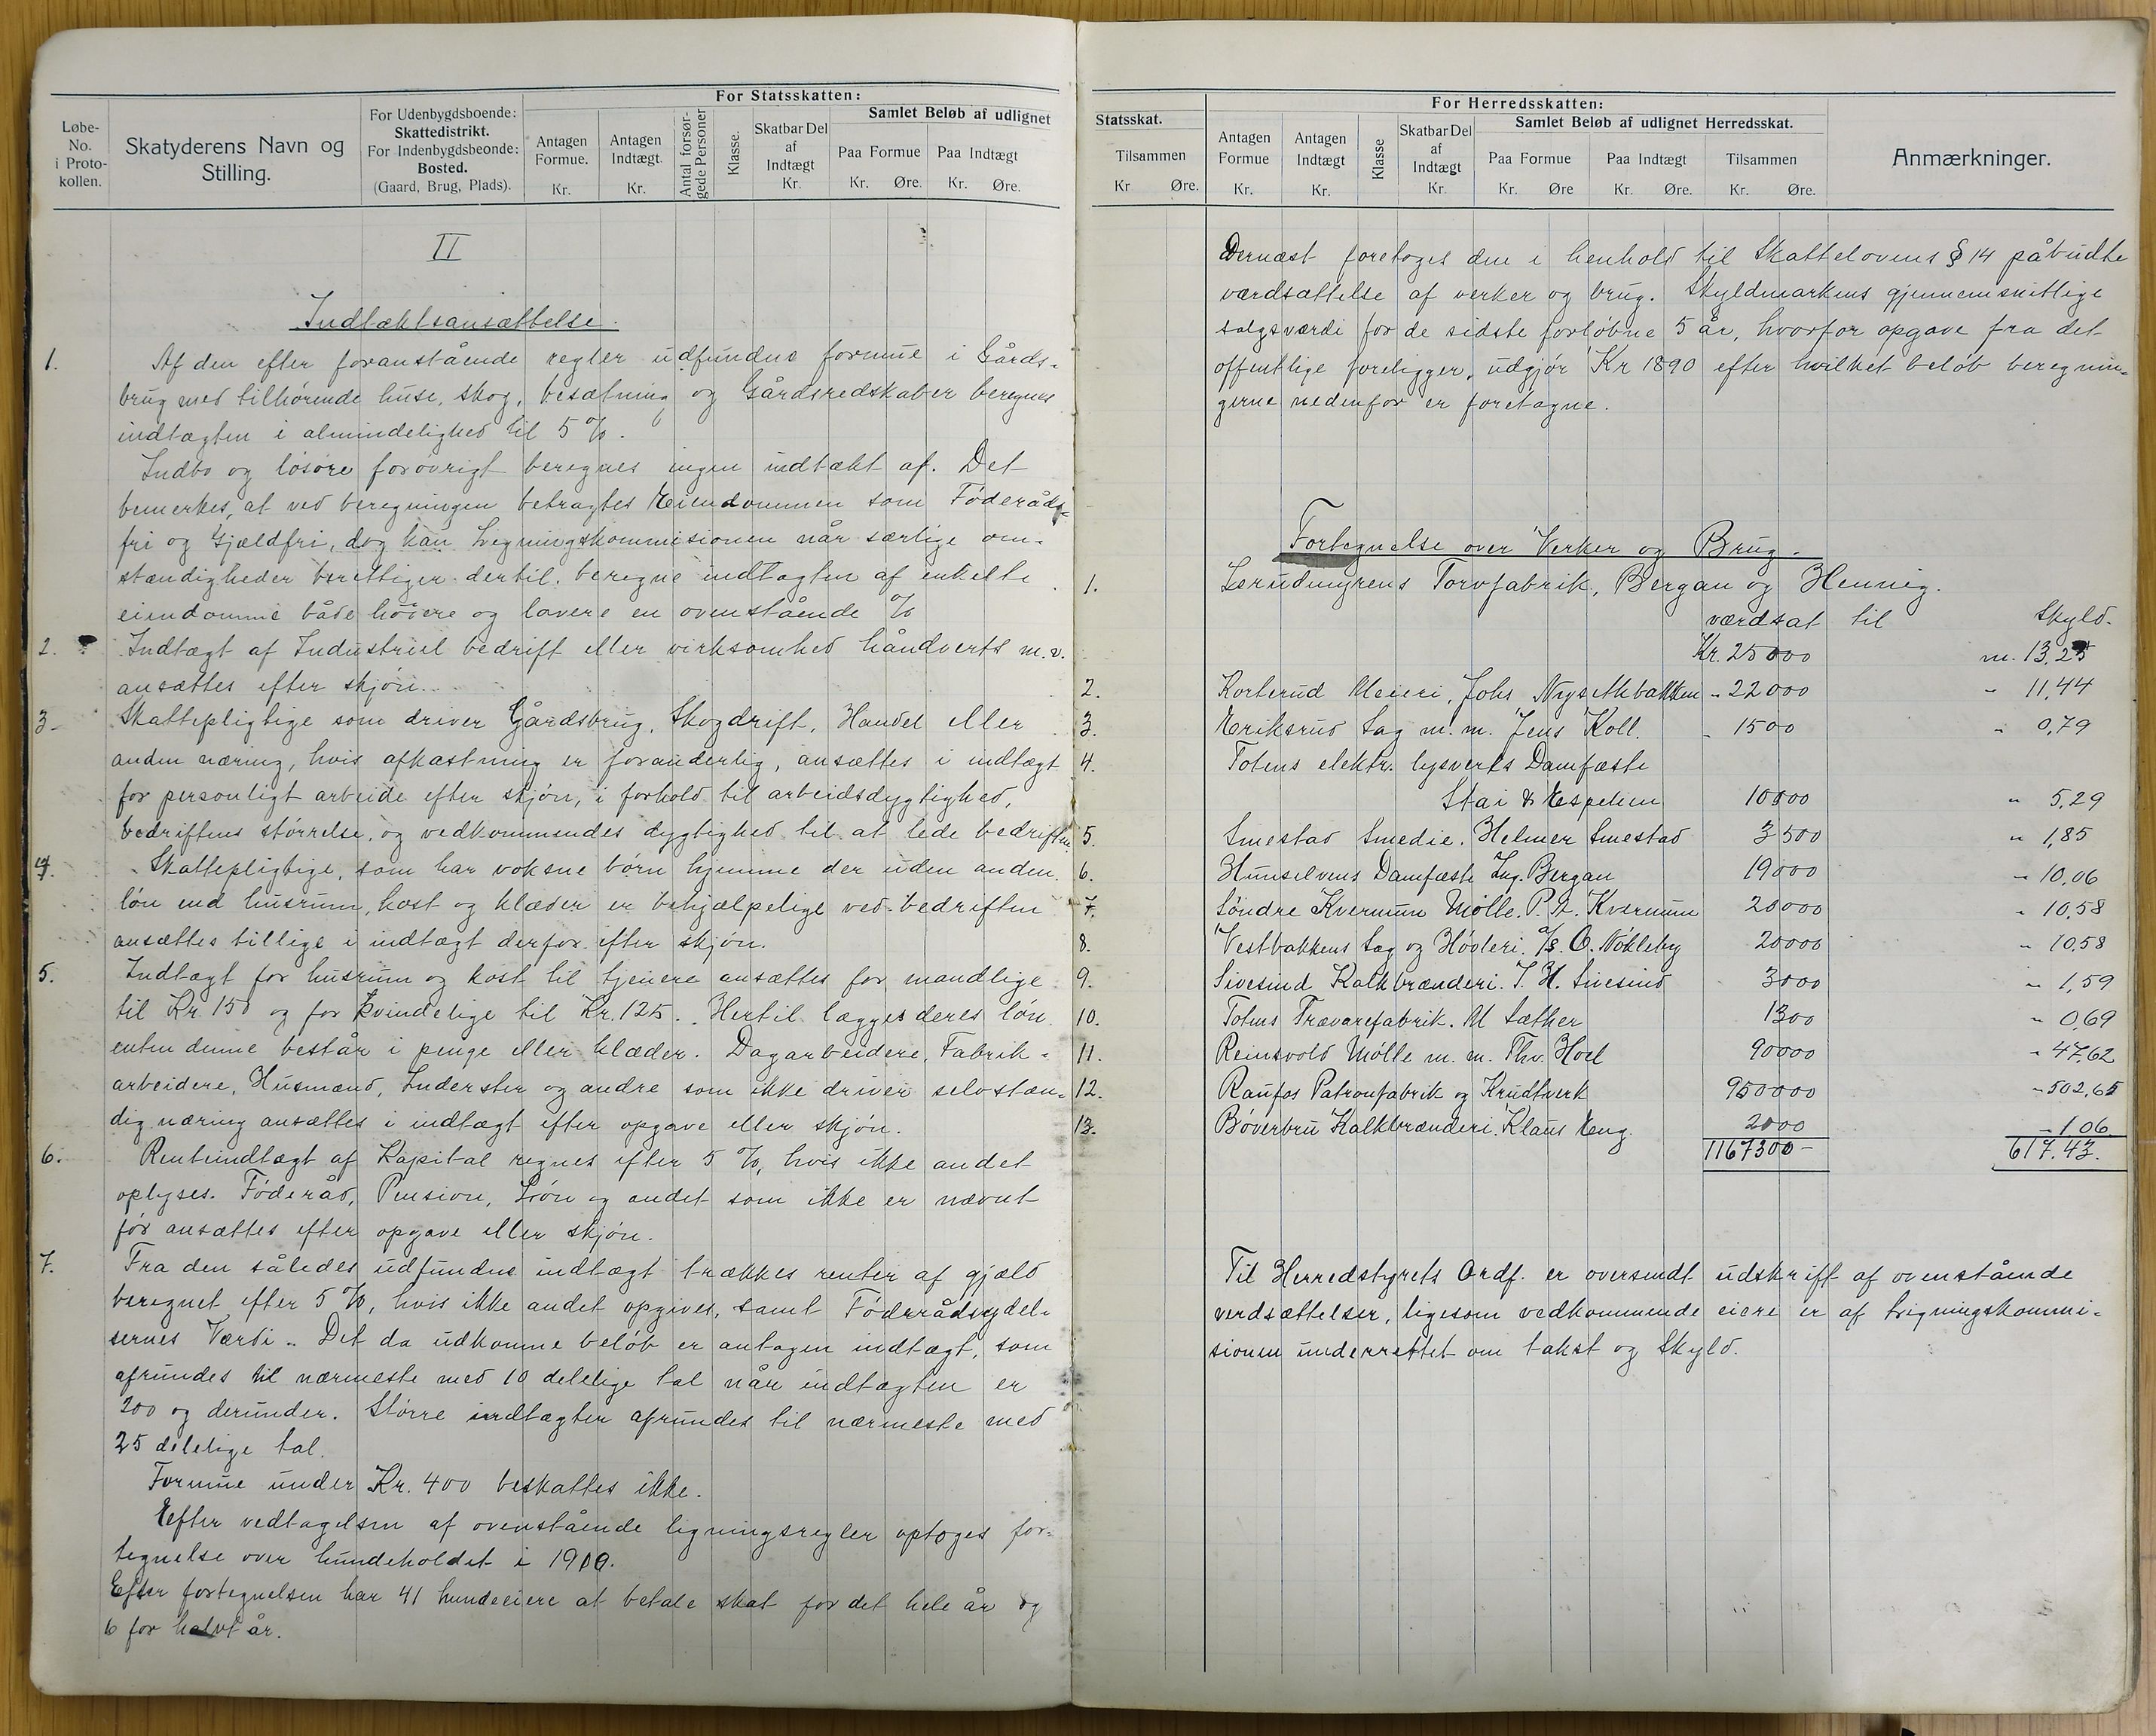 Løbe-
No.
i Proto-
kollen.
Skatyderens Navn og
Stilling.
For Udenbygdsboende:
Skattedistrikt.
For Indenbygdsbeonde:
Bosted.
(Gaard, Brug, Plads).
For Statsskatten:
Antagen
Formue.
Kr.
Antagen
Indtægt.
Kr.
Antal forsør-
gede Personer
Klasse.
Skatbar Del
af
Indtægt
Kr.
Samlet Beløb af udlignet
Paa Formue
Kr. Øre.
Paa Indtægt
Kr. Øre.
II
Indtæktsansættelse.
1. Af den efter foranstående regler udfundne formue i Gårds-
brug med tilhørende huse, skog, besætning og Gårdsredskaber beregnes
indtægten i almindelighed til 5 %.
Indbo og løsøre forøvrigt beregnes ingen indtækt af. Det
bemerkes, at ved beregningen betragtes Eiendommen som Føderåds-
fri og Gjældfri, dog kan Ligningskommisionen når særlige om-
stændigheder berettiger dertil, beregne indtægten af enkelte
eiendomme både høiere og lavere en ovenstående %
2. Indtægt af Industriel bedrift eller virksomhed håndverk m.v.
ansættes efter skjøn.
3. Skattepligtige som driver Gårdsbrug, Skogdrift, Handel eller
anden næring, hvis afkastning er foranderlig, ansættes i indtægt
for personligt arbeide efter skjøn, i forhold til arbeidsdygtighed,
bedriftens størrelse, og vedkommendes dygtighed til at lede bedriften.
4. Skattepligtige, som har voksne børn hjemme der uden anden
løn end husrum, kost og klæder er behjælpelige ved bedriften
ansættes tillige i indtægt derfor efter skjøn.
5. Indtægt for husrum og kost til tjenere ansættes for mandlige
til Kr. 150 og for kvindelige til Kr. 125. Hertil lægges deres løn
enten denne består i penge eller klæder. Dagarbeidere, Fabrik-
arbeidere, Husmænd, Inderster og andre som ikke driver selvstæn-
dig næring ansættes i indtægt efter opgave eller skjøn.
6. Renteindtægt af Kapital regnes efter 5 %, hvis ikke andet
oplyses. Føderåd, Pension, Løn og andet som ikke er nævnt
før ansættes efter opgave eller skjøn.
7. Fra den således udfundne indtægt trækkes renter af gjæld
beregnet efter 5 %, hvis ikke andet opgives, samt Føderådsydel-
sernes Værdi. Det da udkomne beløb er antagen indtægt, som
afrundes til nærmeste med 10 delelige tal når indtægten er
200 og derunder. Større indtægter afrundes til nærmeste med
25 delelige tal.
Formue under Kr. 400 beskattes ikke.
Efter vedtagelsen af ovenstående ligningsregler optoges for-
tegnelse over hundeholdet i 1910.
Efter fortegnelsen har 41 hundeeiere at betale skat for det hele år og
6 for halvt år.
Statsskat.
Tilsammen
Kr Øre.
For Herredsskatten:
Antagen
Formue
Kr.
Antagen
Indtægt
Kr.
Klasse
Skatbar Del
af
Indtægt
Kr.
Samlet Beløb af udlignet Herredsskat.
Paa Formue
Kr. Øre
Paa Indtægt
Kr. Øre.
Tilsammen
Kr. Øre.
Anmærkninger.
Dernæst foretoges den i henhold til Skattelovens § 14 påbudte
værdsættelse af verker og brug. Skyldmarkens gjennemsnitlige
salgsværdi for de sidste forløbne 5 år, hvorfor opgave fra det
offentlige foreligger, udgjør Kr 1890 efter hvilket beløb beregnin-
gerne nedenfor er foretagne.
Fortegnelse over Verker og Brug.
1. Lærudmyrens Torvfabrik, Bergan og Hennig.
værdsat til Skyld.
Kr. 25000 m. 13,25
2. Korterud Meieri, Johs Nysethbakken - 22000 " 11,44
3. Eriksrud Sag m. m. Jens Koll. - 1500 " 0,79
4. Totens elektr. lysverks Damfæste
Stai & Espelien 10000 " 5,29
5. Smestad Smedie. Helmer Smestad 3500 " 1,85
6. Hunselvens Damfæste Ing. Bergan 19000 " 10,06
7. Søndre Kvernum Mølle. P. A. Kvernum 20000 " 10,58
8. Vestbakkens Sag og Høvleri. A/S. O. Nøkleby 20000 " 10,58
9. Sivesind Kalkbrænderi. J. H. Sivesind 3000 " 1,59
10. Totens Trævarefabrik. M Sæther 1300 " 0,69
11. Reinsvold Mølle m. m. Thv. Hoel 90000 " 47,62
12. Raufos Patronfabrik og Krudtverk 950000 " 502,65
13. Bøverbru Kalkbrænderi. Klaus Eng. 2000 " 1 06
1167300- 617.43.
Til Herredstyrets Ordf. er oversendt udskrift af ovenstående
verdsættelser, ligesom vedkommende eiere er af Ligningskommi-
sionen underrettet om takst og Skyld.